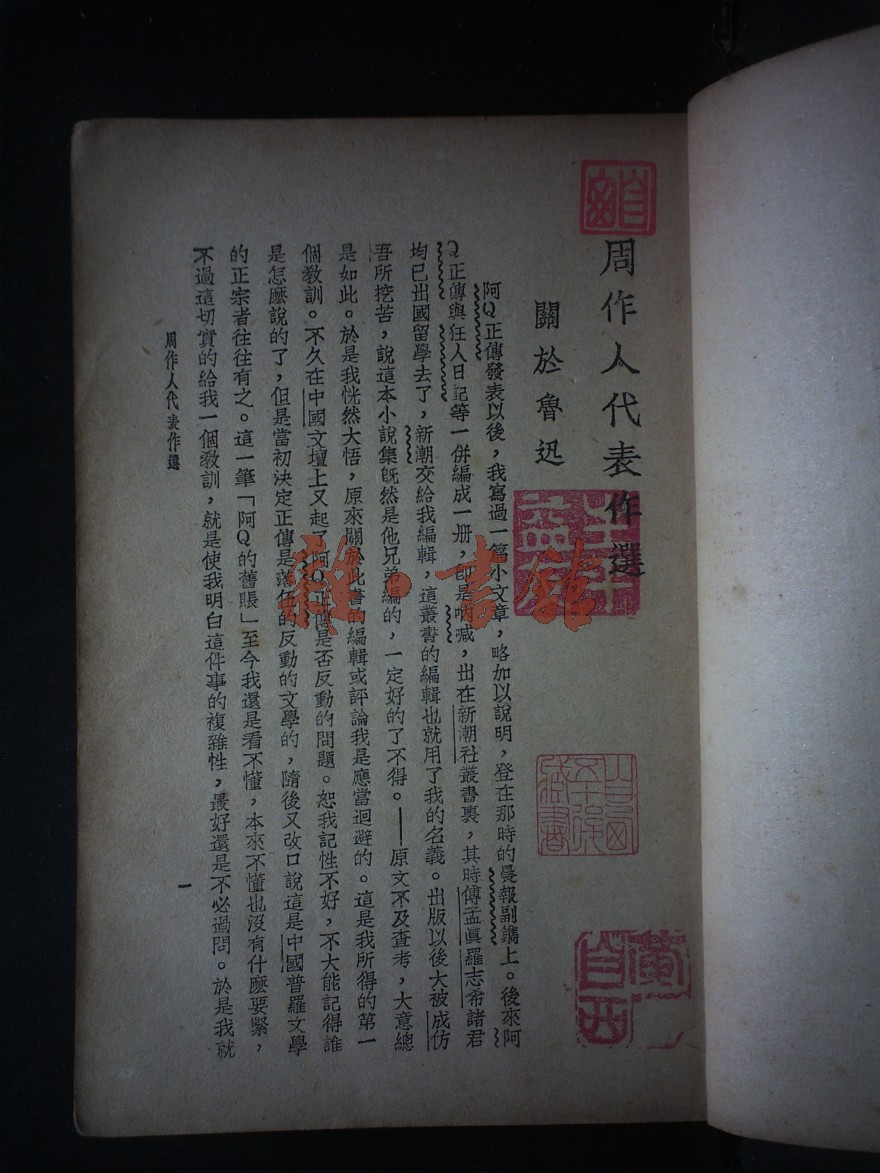 周作人代表作選
關於魯迅
阿Q正傳發表以後，我寫過一篇小文章，略加以說明，登在那時的晨報副鐫上。後來阿
Q正傳與狂人日記等一併編成一册，即是吶喊，出在新潮社叢書裏，其時傅孟眞羅志希諸君
均已出國留學去了，新潮交給我編輯，這叢書的編輯也就用了我的名義。出版以後大被成仿
吾所挖苦，說這本小說集旣然是他兄弟編的，一定好的了不得。——原文不及查考，大意總
是如此。於是我恍然大悟，原來關於此書的編輯或評論我是應當迴避的。這是我所得的第一
個教訓。不久在中國文壇上又起了阿Q正傳是否反動的問題。恕我記性不好，不大能記得誰
是怎麽說的了，但是當初決定正傳是落伍的反動的文學的，隨後又改口說這是中國普羅文學
的正宗者往往有之。這一筆「阿Q的舊賬」至今我還是看不懂，本來不懂也沒有什麽要緊，
不過這切實的給我一個教訓，就是使我明白這件事的複雜性，最好還是不必過問。於是我就
周作人代表作選
一
雜·書館